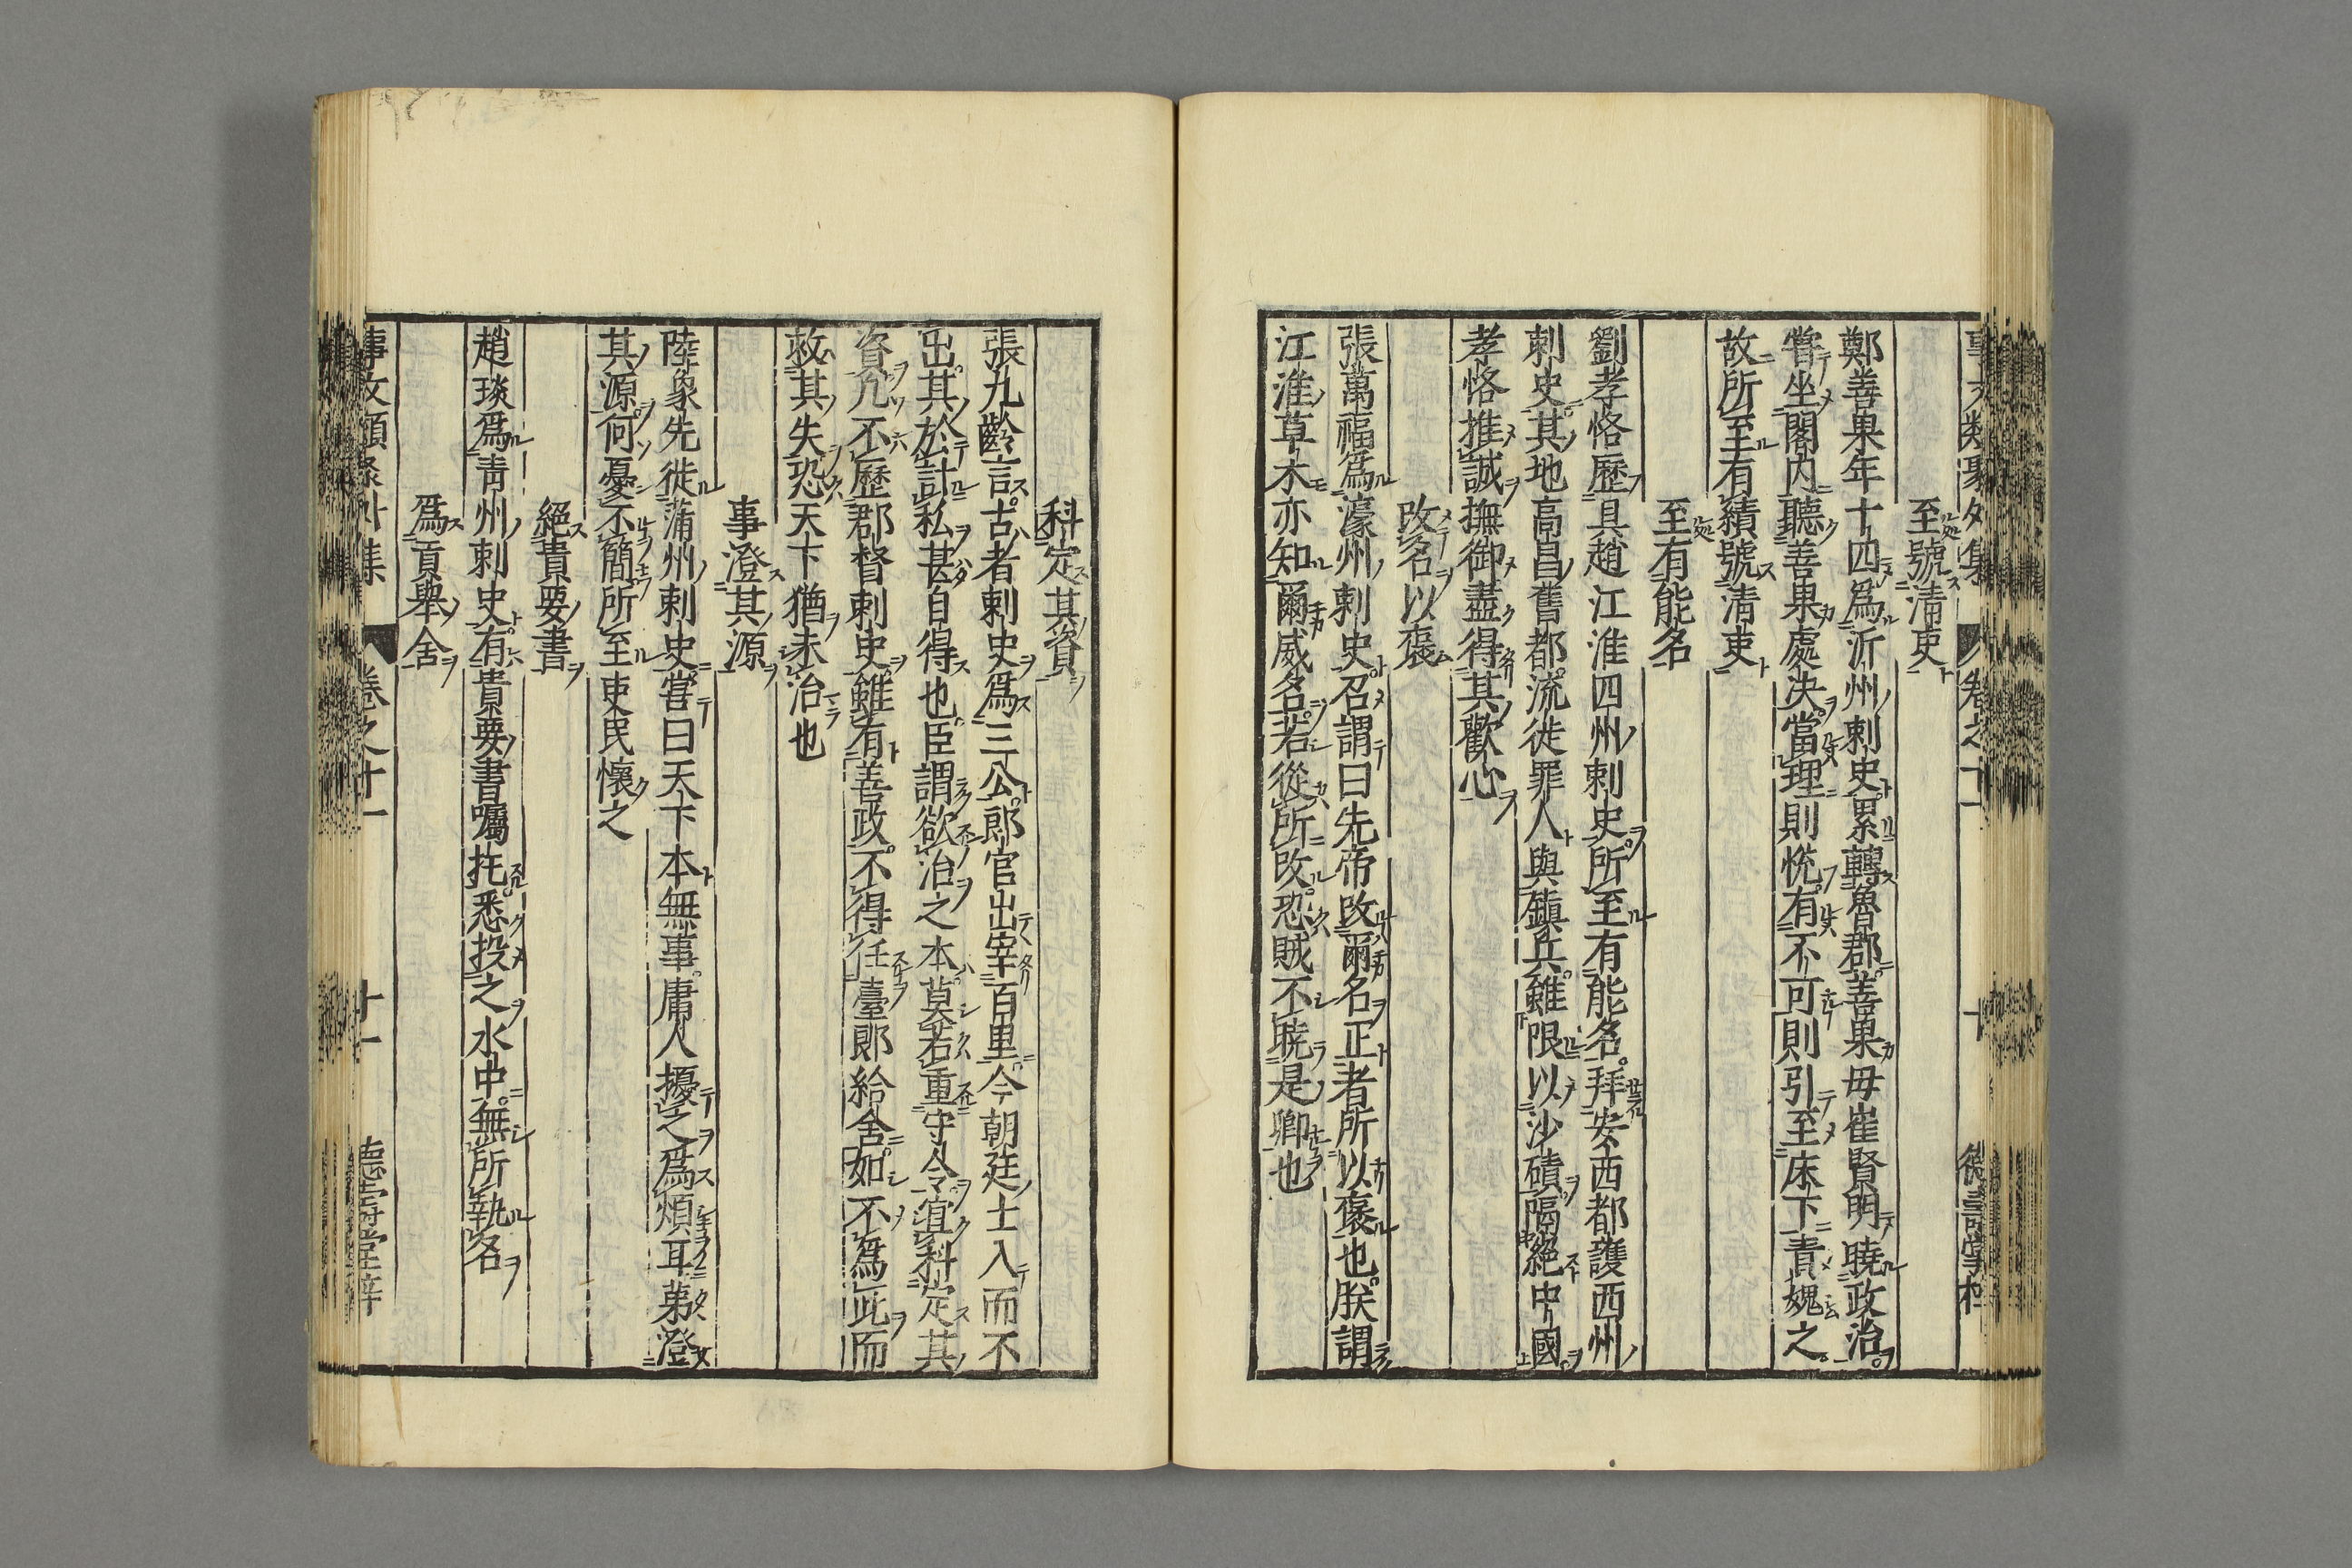 事文類聚外集 卷之十一 十 德壽堂梓
至號清吏
鄭善果年十四爲沂州刺史累轉魯郡善果母崔賢明曉政治
嘗坐閣内聽善果處决當理則悦有不可則引至床下責媿之
故所至有績號清吏
至有能名
劉孝恪歷具趙江淮四州刺史所至有能名拜安西都護西州
刺史其地高昌舊都流徙罪人與鎮兵雖限以沙磧隔絕中國
孝恪推誠撫御盡得其歡心
改名以褒
張萬福爲濠州刺史召謂曰先帝改爾名正者所以褒也朕謂
江淮草木亦知爾威名若從所改恐賊不曉是卿也
科定其資
張九齡言古者刺史爲三公郎官出宰百里今朝廷士入而不
出其於計私甚自得也臣謂欲治之本莫若重守令宜科定其
資凢不歷郡督刺史雖有善政不得任臺郎給舍如不爲此而
救其失恐天下猶未治也
事澄其源
陸象先徙蒲州刺史嘗曰天下本無事庸人擾之爲煩耳第澄
其源何憂不簡所至吏民懷之
絕貴要書
趙琰爲青州刺史有貴要書囑托悉投之水中無所執名
爲貢舉舍
事文類聚外集 卷之十一 十一 德壽堂梓